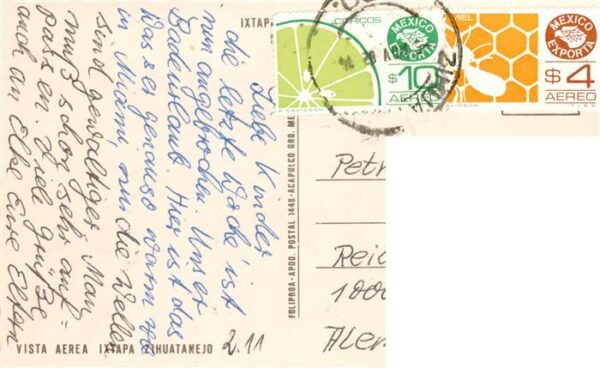 IXTAP
CITRICOS
MEXICO
EXPORTA
$10
AEREO
MIEL
MEXICO
EXPORTA
$4
AEREO
Liebe Kinder
die letzte Woche ist
nun angebrochen. Unser
Badeurlaub. Hier ist das
Wasser genauso warm wie
in Miami, nur die Wellen
sind gewaltiger. Man
muß schon sehr auf=
passen. Viele Grüße
auch an Elke Eure Eltern
FOLIPROA-APDO. POSTAL 1448-ACAPULCO GRO. ME
Petr
Reic
1000
Alem
VISTA AEREA IXTAPA ZIHUATANEJO
2.11